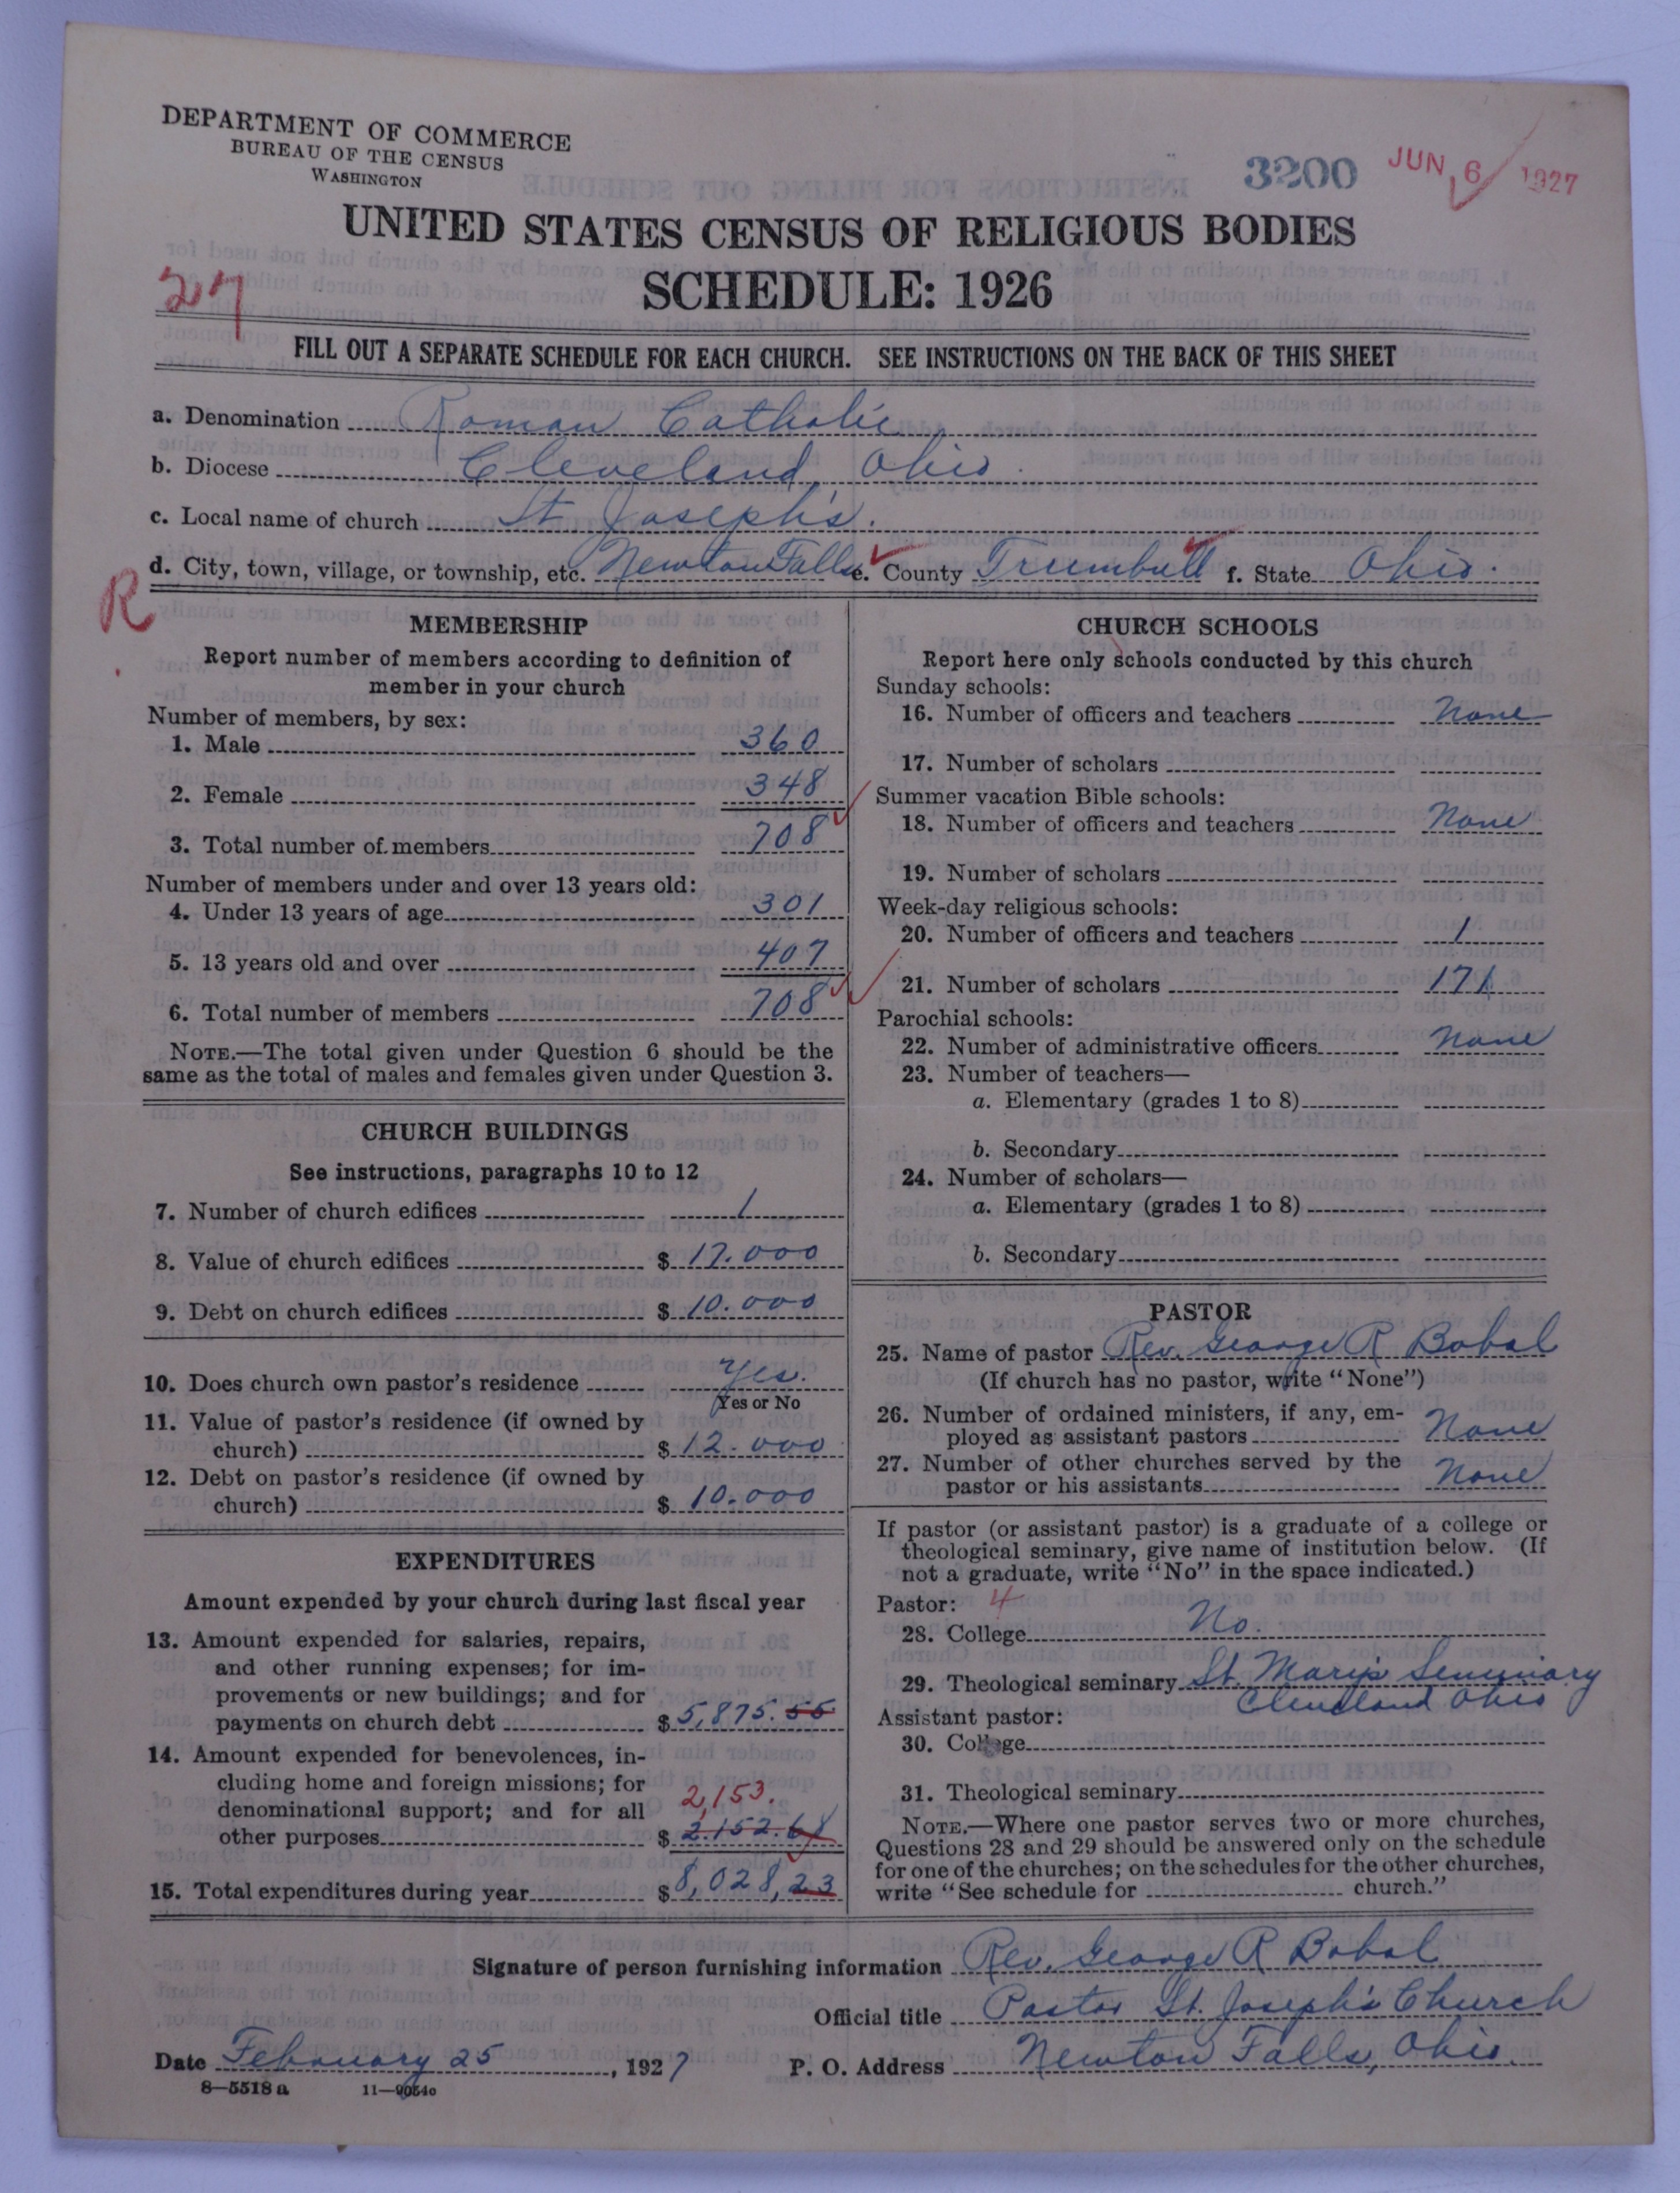 DEPARTMENT OF COMMERCE
BUREAU OF THE CENSUS
WASHINGTON
3200 JUN 6 1927
UNITED STATES CENSUS OF RELIGIOUS BODIES
SCHEDULE: 1926
27
FILL OUT A SEPARATE SCHEDULE FOR EACH CHURCH. SEE INSTRUCTIONS ON THE BACK OF THIS SHEET
a. Denomination Roman Catholic
b. Diocese Cleveland, Ohio.
c. Local name of church St Joseph's.
d. City, town, village, or township, etc. Newton Falls e. County Trumbull f. State Ohio.
R
MEMBERSHIP
Report number of members according to definition of
member in your church
Number of members, by sex:
1. Male 360
2. Female 348
3. Total number of members 708
Number of members under and over 13 years old:
4. Under 13 years of age 301
5. 13 years old and over 407
6. Total number of members 708
NOTE.—The total given under Question 6 should be the
same as the total of males and females given under Question 3.
CHURCH BUILDINGS
See instructions, paragraphs 10 to 12
7. Number of church edifices 1
8. Value of church edifices $ 17.000
9. Debt on church edifices $ 10.000
10. Does church own pastor's residence Yes.
Yes or No
11. Value of pastor's residence (if owned by
church) $ 12.000
12. Debt on pastor's residence (if owned by
church) $ 10.000
EXPENDITURES
Amount expended by your church during last fiscal year
13. Amount expended for salaries, repairs,
and other running expenses; for im-
provements or new buildings; and for
payments on church debt $ 5,875.55
14. Amount expended for benevolences, in-
cluding home and foreign missions; for
denominational support; and for all
2,153.
other purposes $ 2.152.68
15. Total expenditures during year $ 8,028,23
CHURCH SCHOOLS
Report here only schools conducted by this church
Sunday schools:
16. Number of officers and teachers None
17. Number of scholars
Summer vacation Bible schools:
18. Number of officers and teachers None
19. Number of scholars
Week-day religious schools:
20. Number of officers and teachers 1
21. Number of scholars 171
Parochial schools:
22. Number of administrative officers None
23. Number of teachers—
a. Elementary (grades 1 to 8)
b. Secondary
24. Number of scholars—
a. Elementary (grades 1 to 8)
b. Secondary
PASTOR
25. Name of pastor Rev. George R Bobal
(If church has no pastor, write "None")
26. Number of ordained ministers, if any, em-
ployed as assistant pastors None
27. Number of other churches served by the
pastor or his assistants None
If pastor (or assistant pastor) is a graduate of a college or
theological seminary, give name of institution below. (If
not a graduate, write "No" in the space indicated.)
Pastor: 4
28. College No.
29. Theological seminary St. Mary's Seminary
Cleveland Ohio
Assistant pastor:
30. College
31. Theological seminary
NOTE.—Where one pastor serves two or more churches,
Questions 28 and 29 should be answered only on the schedule
for one of the churches; on the schedules for the other churches,
write "See schedule for church."
Signature of person furnishing information Rev. George R Bobal
Official title Pastor St. Joseph's Church
Date February 25, 1927 P. O. Address Newton Falls, Ohio
8—5518 a 11—9054c